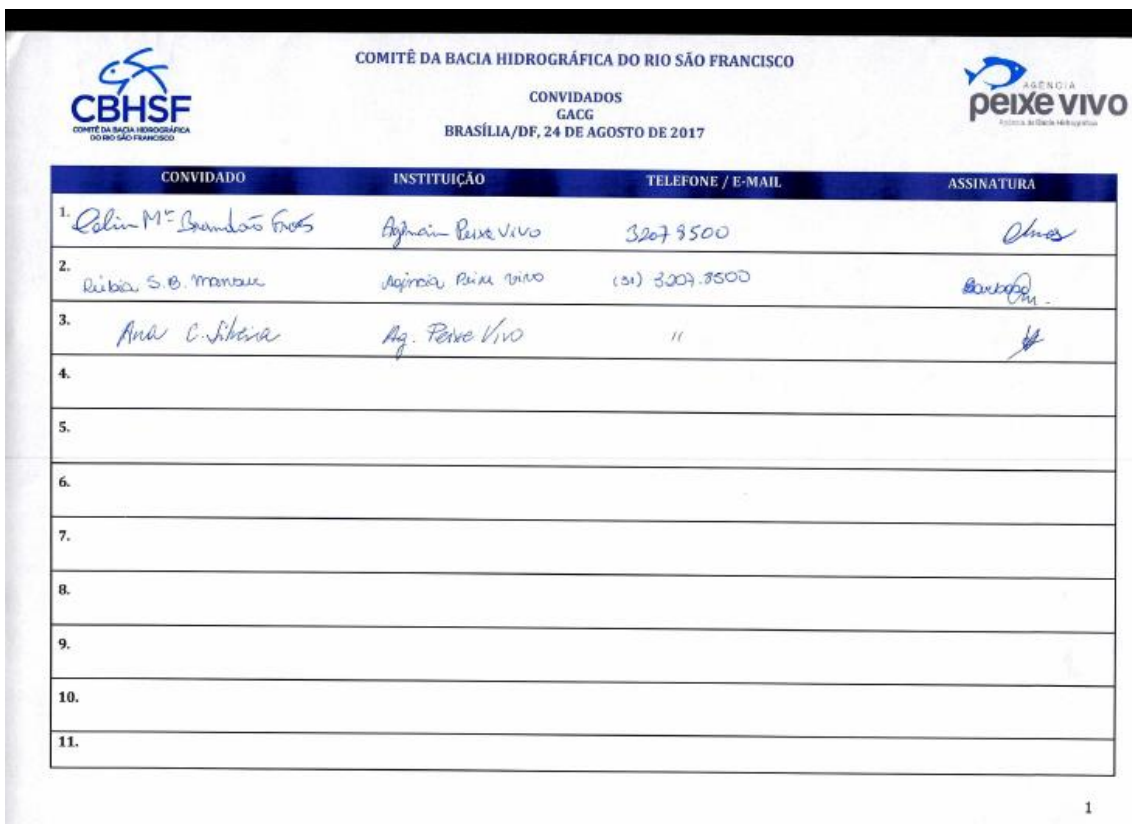 CBHSF
COMITÊ DA BACIA HIDROGRÁFICA
DO RIO SÃO FRANCISCO
COMITÊ DA BACIA HIDROGRÁFICA DO RIO SÃO FRANCISCO
CONVIDADOS
GACG
BRASÍLIA/DF, 24 DE AGOSTO DE 2017
AGÊNCIA
peixe vivo
CONVIDADO INSTITUIÇÃO TELEFONE / E-MAIL ASSINATURA
1. Mª Brandão Peixe Vivo 3207 8500
2. Rúbia S.B. Mansur Agência Peixe Vivo (31) 3207.8500
3. Ana C. Silveira Ag. Peixe Vivo "
4.
5.
6.
7.
8.
9.
10.
11.
1